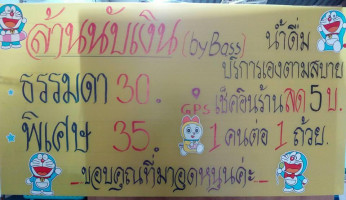 ล้านนับเงิน (by Bass) น้ำดื่ม
บริการเองตามสบาย
ธรรมดา 30.
GPS เช็คอินร้านลด 5 บ.
พิเศษ 35
1 คนต่อ 1 ถ้วย.
ขอบคุณที่มาอุดหนุนค่ะ